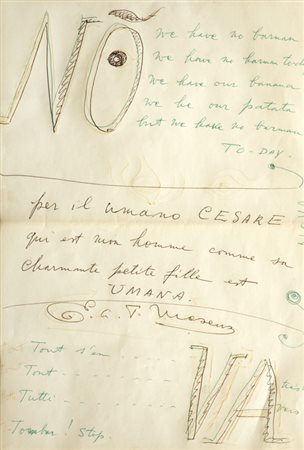 NO
We have no barman
We have no barman
We have our banana
We be our patata
but we have no barman
TO-DAY.
per il umano CESARE
qui est mon homme comme sa
charmante petite fille est
UMANA.
Tout s'en
Tout
Tutti
VA
Tombar! Stop.